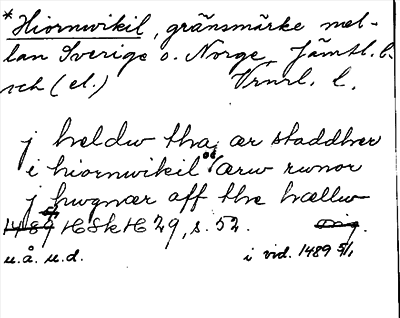 *Hiornwikil, gränsmärke mel-
lan Sverige o. Norge, Jämtl. l.
och (el.) Vrml. l.
j heldw tha ær staddher
i hiornwikil oc ærw rwnor
j hwgnær aff the hællw
1489 HSkH 29, s. 52. orig.
u.å. u.d. i vid. 1489 5/1